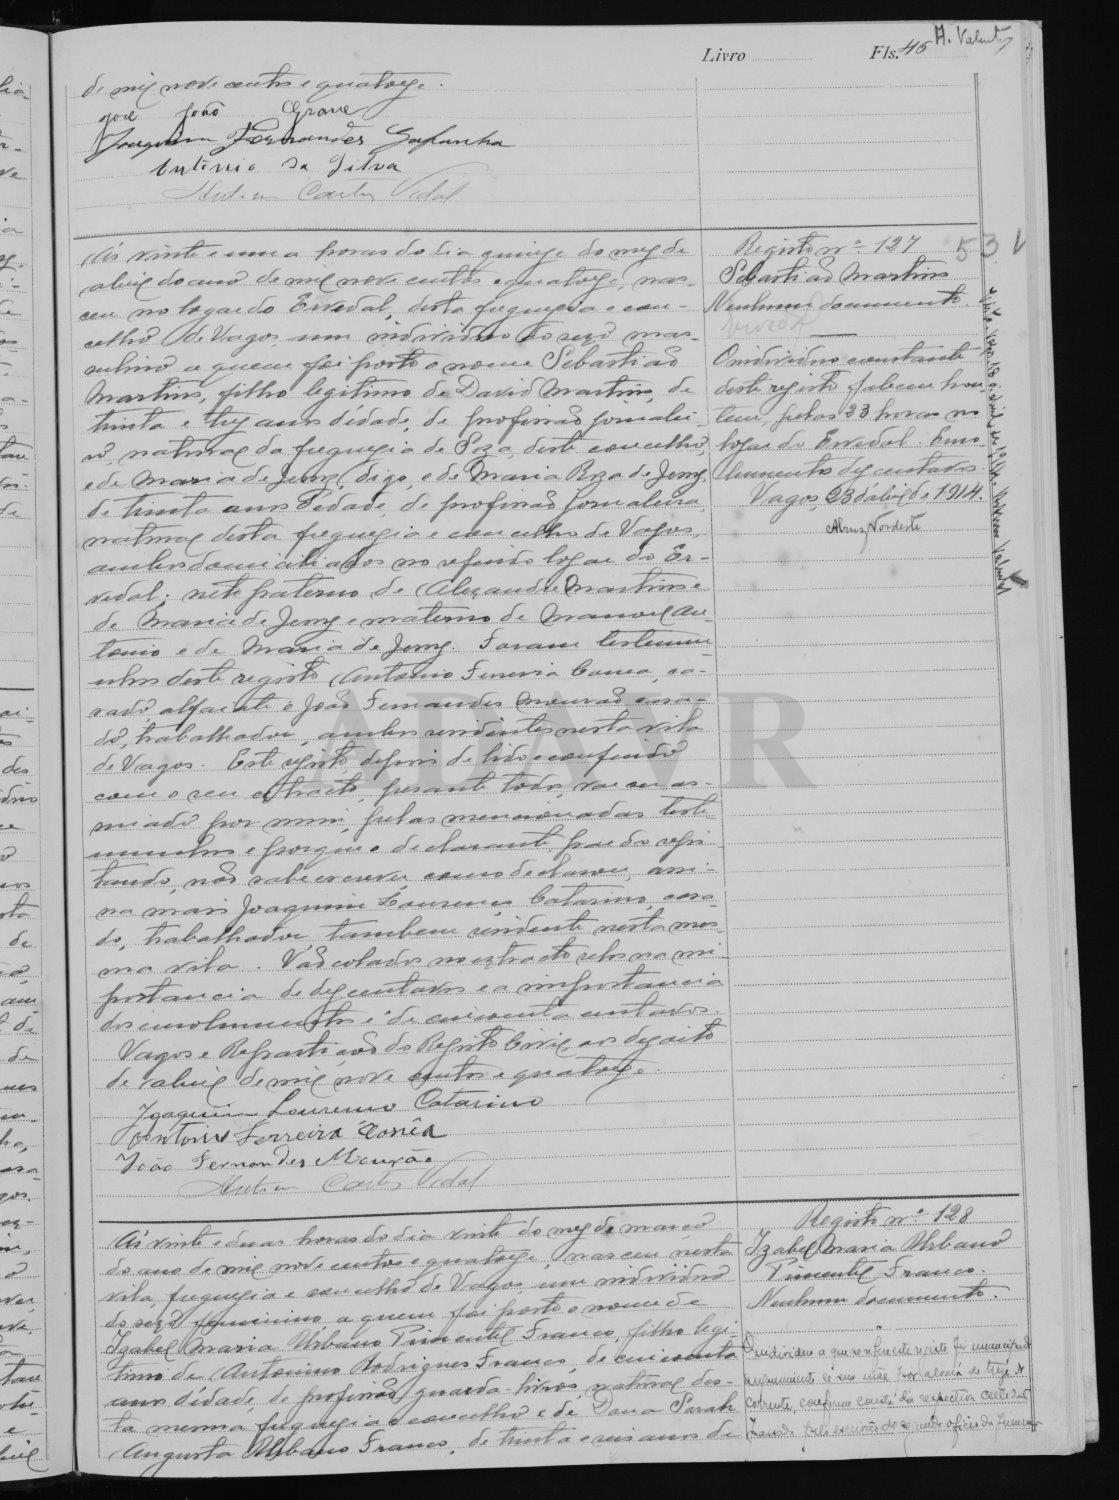 Livro Fls. 46 A. Valente
de mil nove centos e quatorze.
José João Grave
Joaquim Fernandes Gafanha
António da Silva
Antero Carlos Vidal
Ás vinte e uma horas do dia quinze do mez de
abril do ano de mil nove centos e quatorze, nas-
ceu no logar do Ervedal, desta freguezia e con-
celho de Vagos um individuo do sexo mas-
culino a quem foi posto o nome Sebastião
Martins, filho legitimo de David Martins, de
trinta e trez anos d'idade, de profissão jornalei-
ro, natural da freguezia de Soza, deste concelho,
e de Maria de Jesus, digo, e de Maria Roza de Jesus,
de trinta anos d'idade, de profissão jornaleira,
natural desta freguezia e concelho de Vagos,
ambos domiciliados no referido logar do Er-
vedal; neto paterno de Alexandre Martins e
de Maria de Jesus e materno de Manoel An-
tonio e de Maria de Jesus. Foram testemu-
nhas deste registo Antonio Ferreira Correa, ca-
sado, alfaiate e João Fernandes Mourão casa-
do, trabalhador, ambos residentes nesta vila
de Vagos. Este registo, depois de lido e conferido
com o seu extracto, perante todos, vae ser as-
sinado por mim, pelas mencionadas teste-
munhas e porque o declarante, pae do regis-
tando, não sabe escrever, como declarou, assi-
na mais Joaquim Lourenço Catarino, casa-
do, trabalhador, tambem residente nesta mes-
ma vila. Vão colados no extracto selos na im-
portancia de dez centavos e a importancia
dos emolumentos é de cincoenta centavos.
Vagos e Repartição do Registo Civil, aos dezoito
de abril de mil nove centos e quatorze.
Joaquim Lourenço Catarino
Antonio Ferreira Corrêa
João Fernandes Mourão
Antero Carlos Vidal
Registo nº 127
53
Sebastião Martins
Nenhum documento.
O individuo constante
deste registo faleceu hon-
tem, pelas 23 horas no
logar do Ervedal. Emo-
lumentos dez centavos.
Vagos, 23 d'abril de 1914.
Ás vinte e duas horas do dia vinte do mez de março
do ano de mil nove centos e quatorze, nasceu nesta
vila, freguezia e concelho de Vagos, um individuo
do sexo feminino, a quem foi posto o nome de
Izabel Maria Urbano Pimentel Franco, filho legi-
timo de Antonino Rodrigues Franco, de cincoenta
anos d'idade, de profissão guarda-livros, natural des-
ta mesma freguezia e concelho e de Dona Sarah
Augusta Urbano Franco, de trinta e seis anos de
Registo nº 128
Izabel Maria Urbano
Pimentel Franco.
Nenhum documento.
O individuo a que se refere este registo foi emancipado
por alvará de treze do
corrente, conforme consta da respectiva certidão
ADAVR